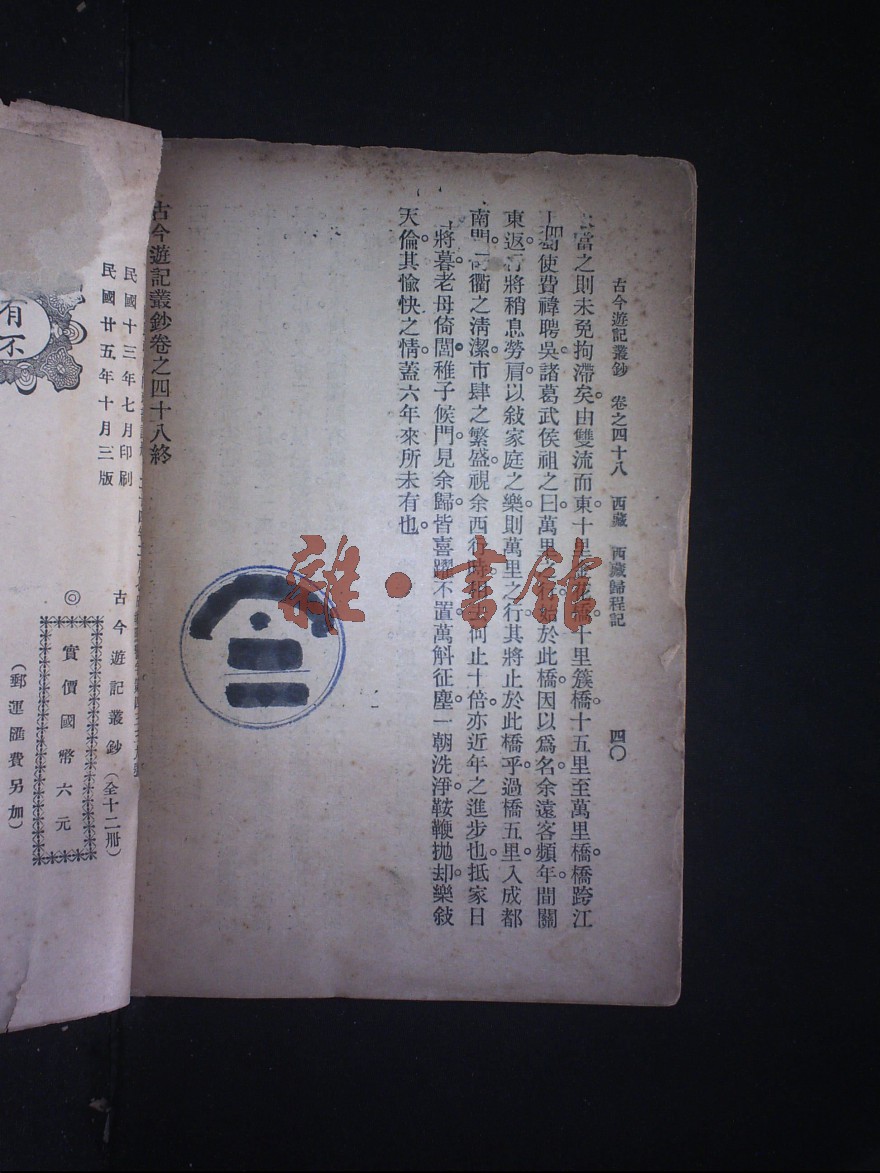 古今遊記叢鈔 卷之四十八 西藏 西藏歸程記 四〇
當之則未免拘滯矣。由雙流而東。十里花橋。十里簇橋。十五里至萬里橋。橋跨江
上。葛使費禕聘吳。諸葛武侯祖之曰。萬里始於此橋。因以爲名。余遠客頻年。間關
東返。行將稍息勞肩。以敍家庭之樂。則萬里之行。其將止於此橋乎。過橋五里。入成都
南門。衢之淸潔。市肆之繁盛。視余西行時相去何止十倍。亦近年之進步也。抵家日
將暮。老母倚閭。稚子候門。見余歸。皆喜躍不置。萬斛征塵。一朝洗淨。鞍鞭拋却。樂敍
天倫。其愉快之情。蓋六年來所未有也。
古今遊記叢鈔卷之四十八終
雜·書館
民國十三年七月印刷
民國廿五年十月三版
古今遊記叢鈔（全十二册）
◎實價國幣六元
（郵運匯費另加）
有不